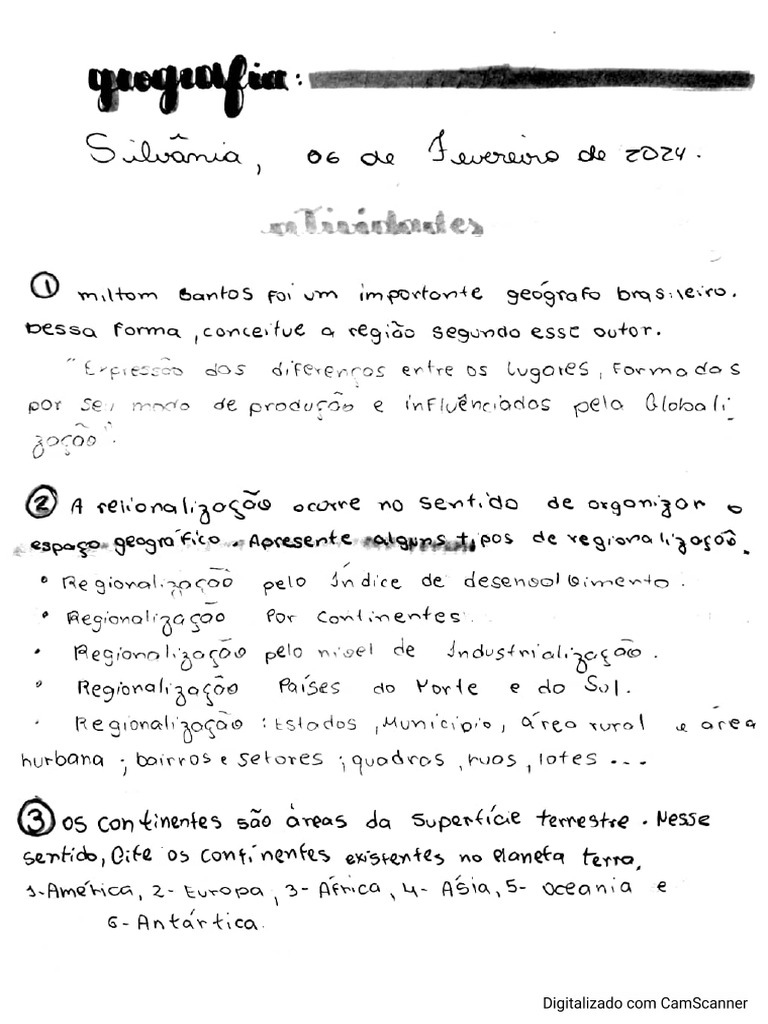 geografia:
Silvânia, 06 de Fevereiro de 2024.
atividades
① miltom santos foi um importante geógrafo brasileiro.
Dessa forma, conceitue a região segundo esse autor.
"Expressão das diferenças entre os lugares, formadas
por seu modo de produção e influênciados pela Globali
zação".
② A relionalização ocorre no sentido de organizar o
espaço geográfico. Apresente alguns tipos de regionalização.
• Regionalização pelo índice de desenvolvimento.
• Regionalização Por continentes.
• Regionalização pelo nivel de Industrialização.
• Regionalização Países do Norte e do Sul.
• Regionalização: Estados, Município, área rural e área
hurbana; bairros e setores; quadras, ruas, lotes...
③ os continentes são áreas da superfície terrestre. Nesse
sentido, Cite os continentes existentes no planeta terra.
1-América, 2- Europa, 3- África, 4- Ásia, 5- Oceania e
6- Antártica.
Digitalizado com CamScanner